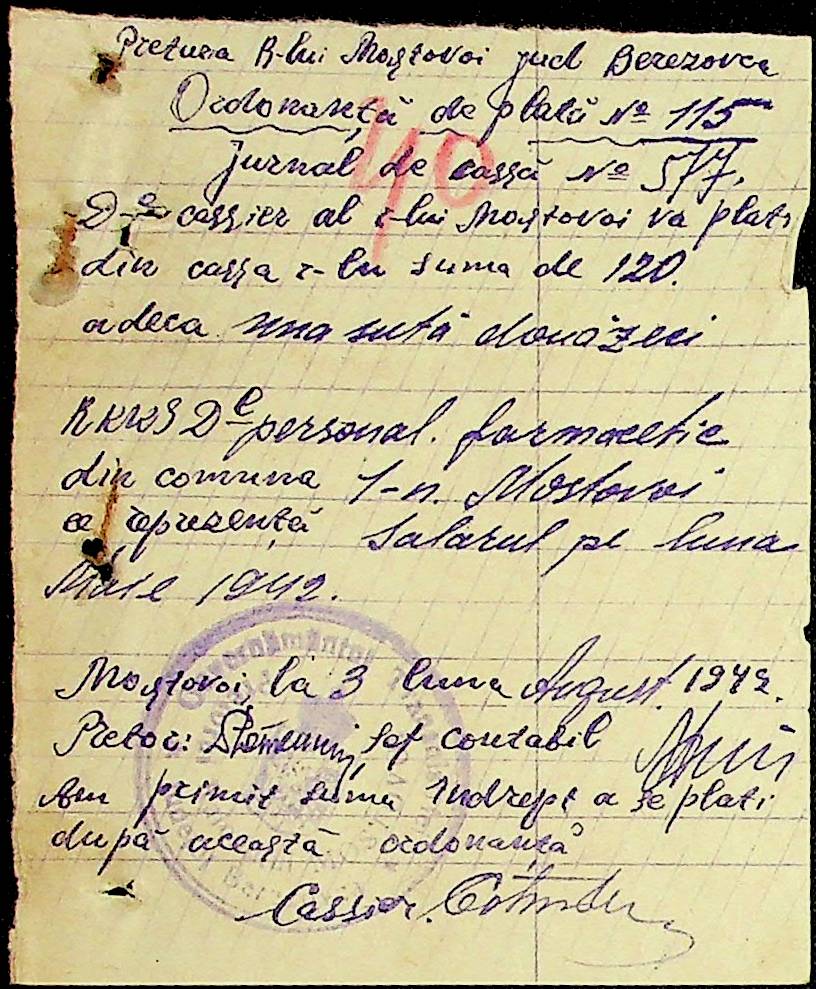 Pretura R-lui Mostovoi jud Berezovca
Ordonanță de plată № 115
40
jurnal de cassă № 577.
D-e cassier al r-lui Mostovoi va plati
din cassa r-lu suma de 120.
adeca una sută douăzeci
RKKS D-e personal. farmacetic
din comuna 1-n. Mostovoi
ce reprezentă Salarul pe luna
Maie 1942.
Mostovoi, la 3 luna August. 1942.
Pretor: șef contabil
Am primit suma indrept a se plati
după această ordonanță
Cassier.
Guvernământul